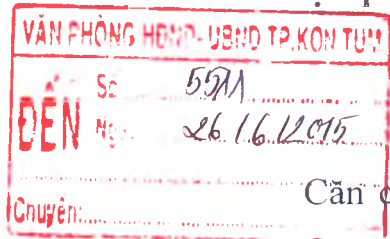 VĂN PHÒNG HĐND - UBND TP.KON TUM
ĐẾN
Số 5511
Ngày 26/6/2015
Chuyển:
Căn c